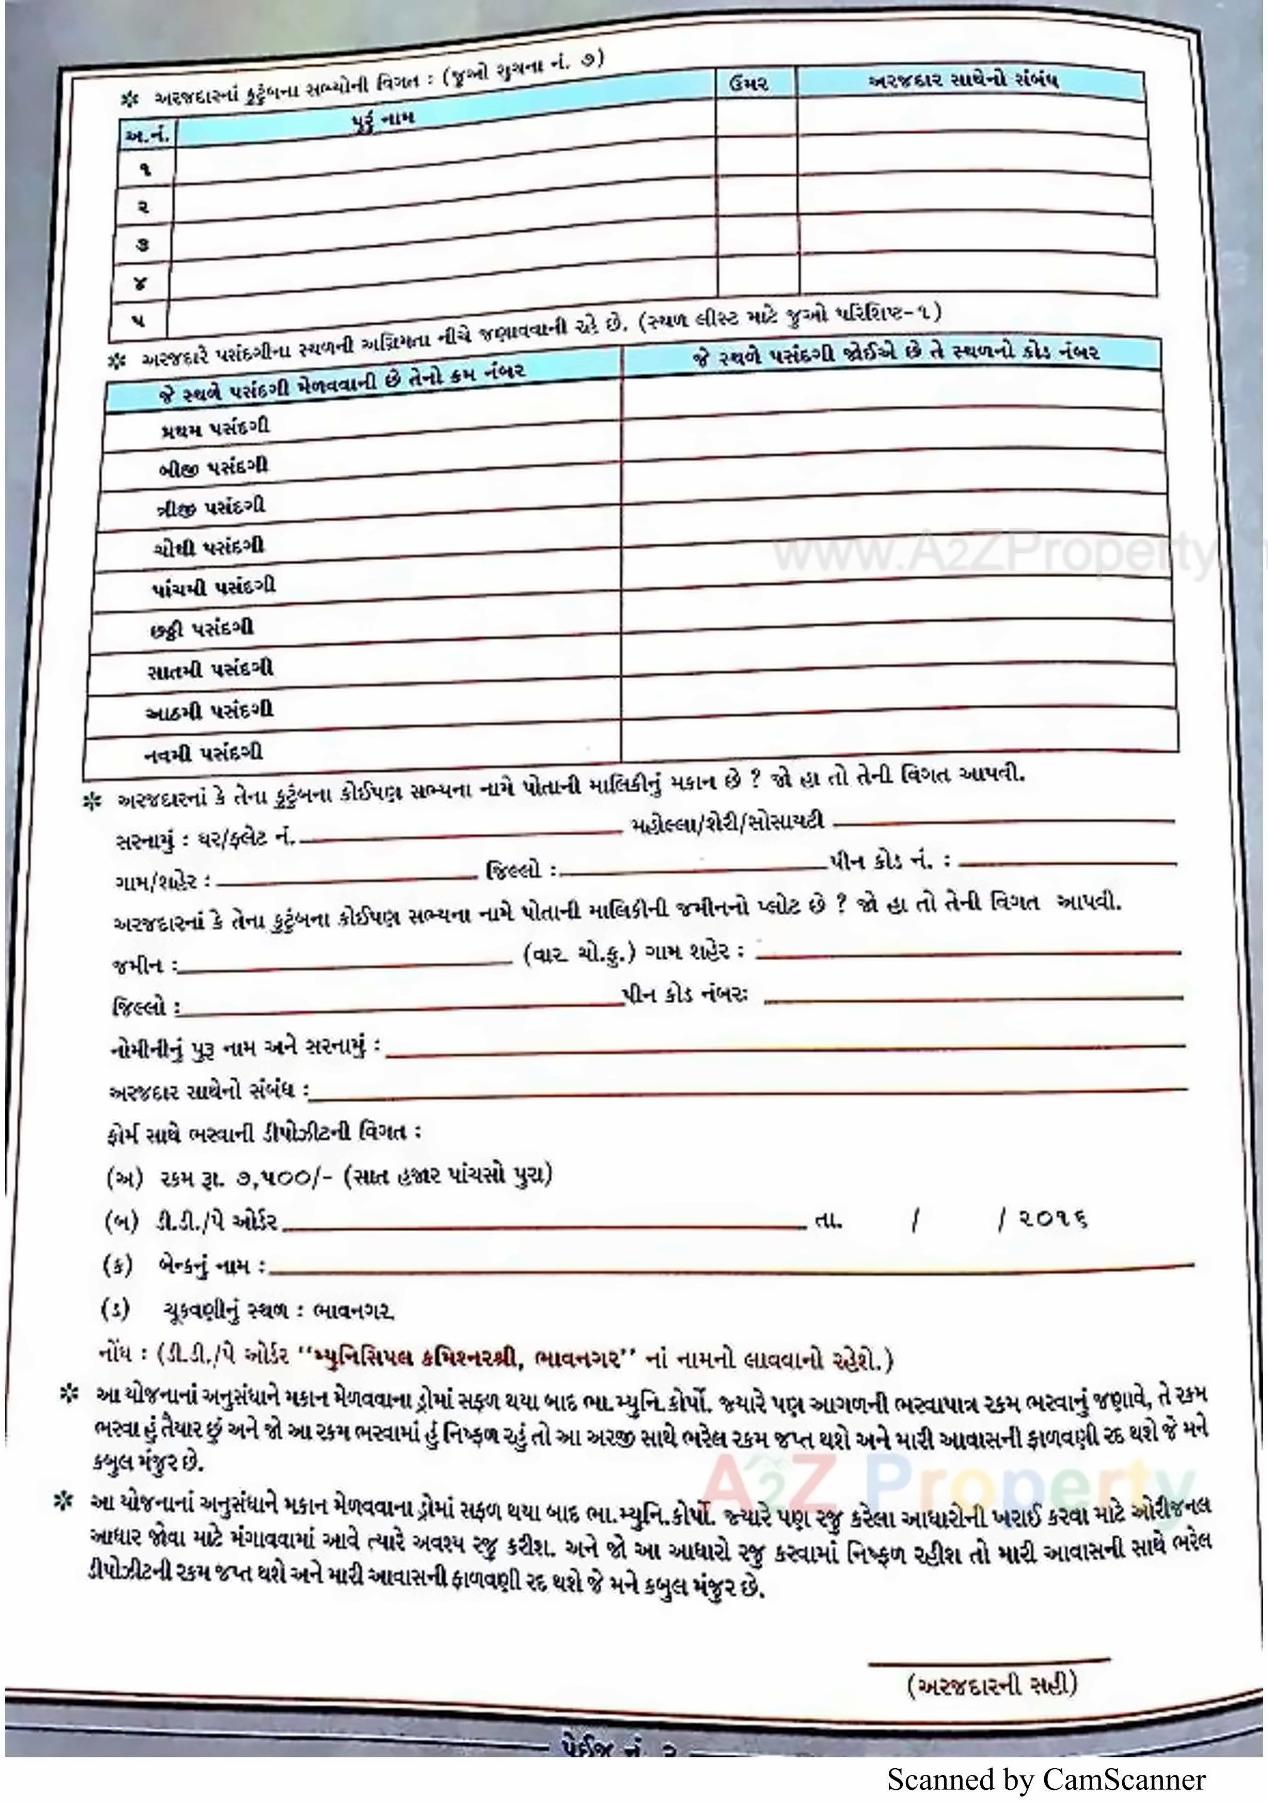 ✻ અરજદારનાં કુટુંબના સભ્યોની વિગત : (જુઓ સુચના નં. ૭)
અ.નં. પુરૂં નામ ઉંમર અરજદાર સાથેનો સંબંધ
૧
૨
૩
૪
૫
✻ અરજદારે પસંદગીના સ્થળની અગ્રિમતા નીચે જણાવવાની રહે છે. (સ્થળ લીસ્ટ માટે જુઓ પરિશિષ્ટ-૧)
જે સ્થળે પસંદગી મેળવવાની છે તેનો ક્રમ નંબર જે સ્થળે પસંદગી જોઈએ છે તે સ્થળનો કોડ નંબર
પ્રથમ પસંદગી
બીજી પસંદગી
ત્રીજી પસંદગી
ચોથી પસંદગી
www.A2ZProperty.in
પાંચમી પસંદગી
છઠ્ઠી પસંદગી
સાતમી પસંદગી
આઠમી પસંદગી
નવમી પસંદગી
✻ અરજદારનાં કે તેના કુટુંબના કોઈપણ સભ્યના નામે પોતાની માલિકીનું મકાન છે ? જો હા તો તેની વિગત આપવી.
સરનામું : ઘર/ફ્લેટ નં. મહોલ્લા/શેરી/સોસાયટી
ગામ/શહેર : જિલ્લો : પીન કોડ નં. :
અરજદારનાં કે તેના કુટુંબના કોઈપણ સભ્યના નામે પોતાની માલિકીની જમીનનો પ્લોટ છે ? જો હા તો તેની વિગત આપવી.
જમીન : (વાર ચો.ફુ.) ગામ શહેર :
જિલ્લો : પીન કોડ નંબરઃ
નોમીનીનું પુરૂ નામ અને સરનામું :
અરજદાર સાથેનો સંબંધ :
ફોર્મ સાથે ભરવાની ડીપોઝીટની વિગત :
(અ) રકમ રૂા. ૭,૫૦૦/- (સાત હજાર પાંચસો પુરા)
(બ) ડી.ડી./પે ઓર્ડર તા. / / ૨૦૧૬
(ક) બેન્કનું નામ :
(ડ) ચૂકવણીનું સ્થળ : ભાવનગર
નોંધ : (ડી.ડી./પે ઓર્ડર "મ્યુનિસિપલ કમિશ્નરશ્રી, ભાવનગર" નાં નામનો લાવવાનો રહેશે.)
✻ આ યોજનાનાં અનુસંધાને મકાન મેળવવાના ડ્રોમાં સફળ થયા બાદ ભા.મ્યુનિ.કોર્પો. જ્યારે પણ આગળની ભરવાપાત્ર રકમ ભરવાનું જણાવે, તે રકમ
ભરવા હું તૈયાર છું અને જો આ રકમ ભરવામાં હું નિષ્ફળ રહું તો આ અરજી સાથે ભરેલ રકમ જપ્ત થશે અને મારી આવાસની ફાળવણી રદ થશે જે મને
કબુલ મંજુર છે.
A2Z Property
✻ આ યોજનાનાં અનુસંધાને મકાન મેળવવાના ડ્રોમાં સફળ થયા બાદ ભા.મ્યુનિ.કોર્પો. જ્યારે પણ રજુ કરેલા આધારોની ખરાઈ કરવા માટે ઓરીજનલ
આધાર જોવા માટે મંગાવવામાં આવે ત્યારે અવશ્ય રજુ કરીશ. અને જો આ આધારો રજુ કરવામાં નિષ્ફળ રહીશ તો મારી આવાસની સાથે ભરેલ
ડીપોઝીટની રકમ જપ્ત થશે અને મારી આવાસની ફાળવણી રદ થશે જે મને કબુલ મંજુર છે.
(અરજદારની સહી)
પેઈજ નં. ૨
Scanned by CamScanner